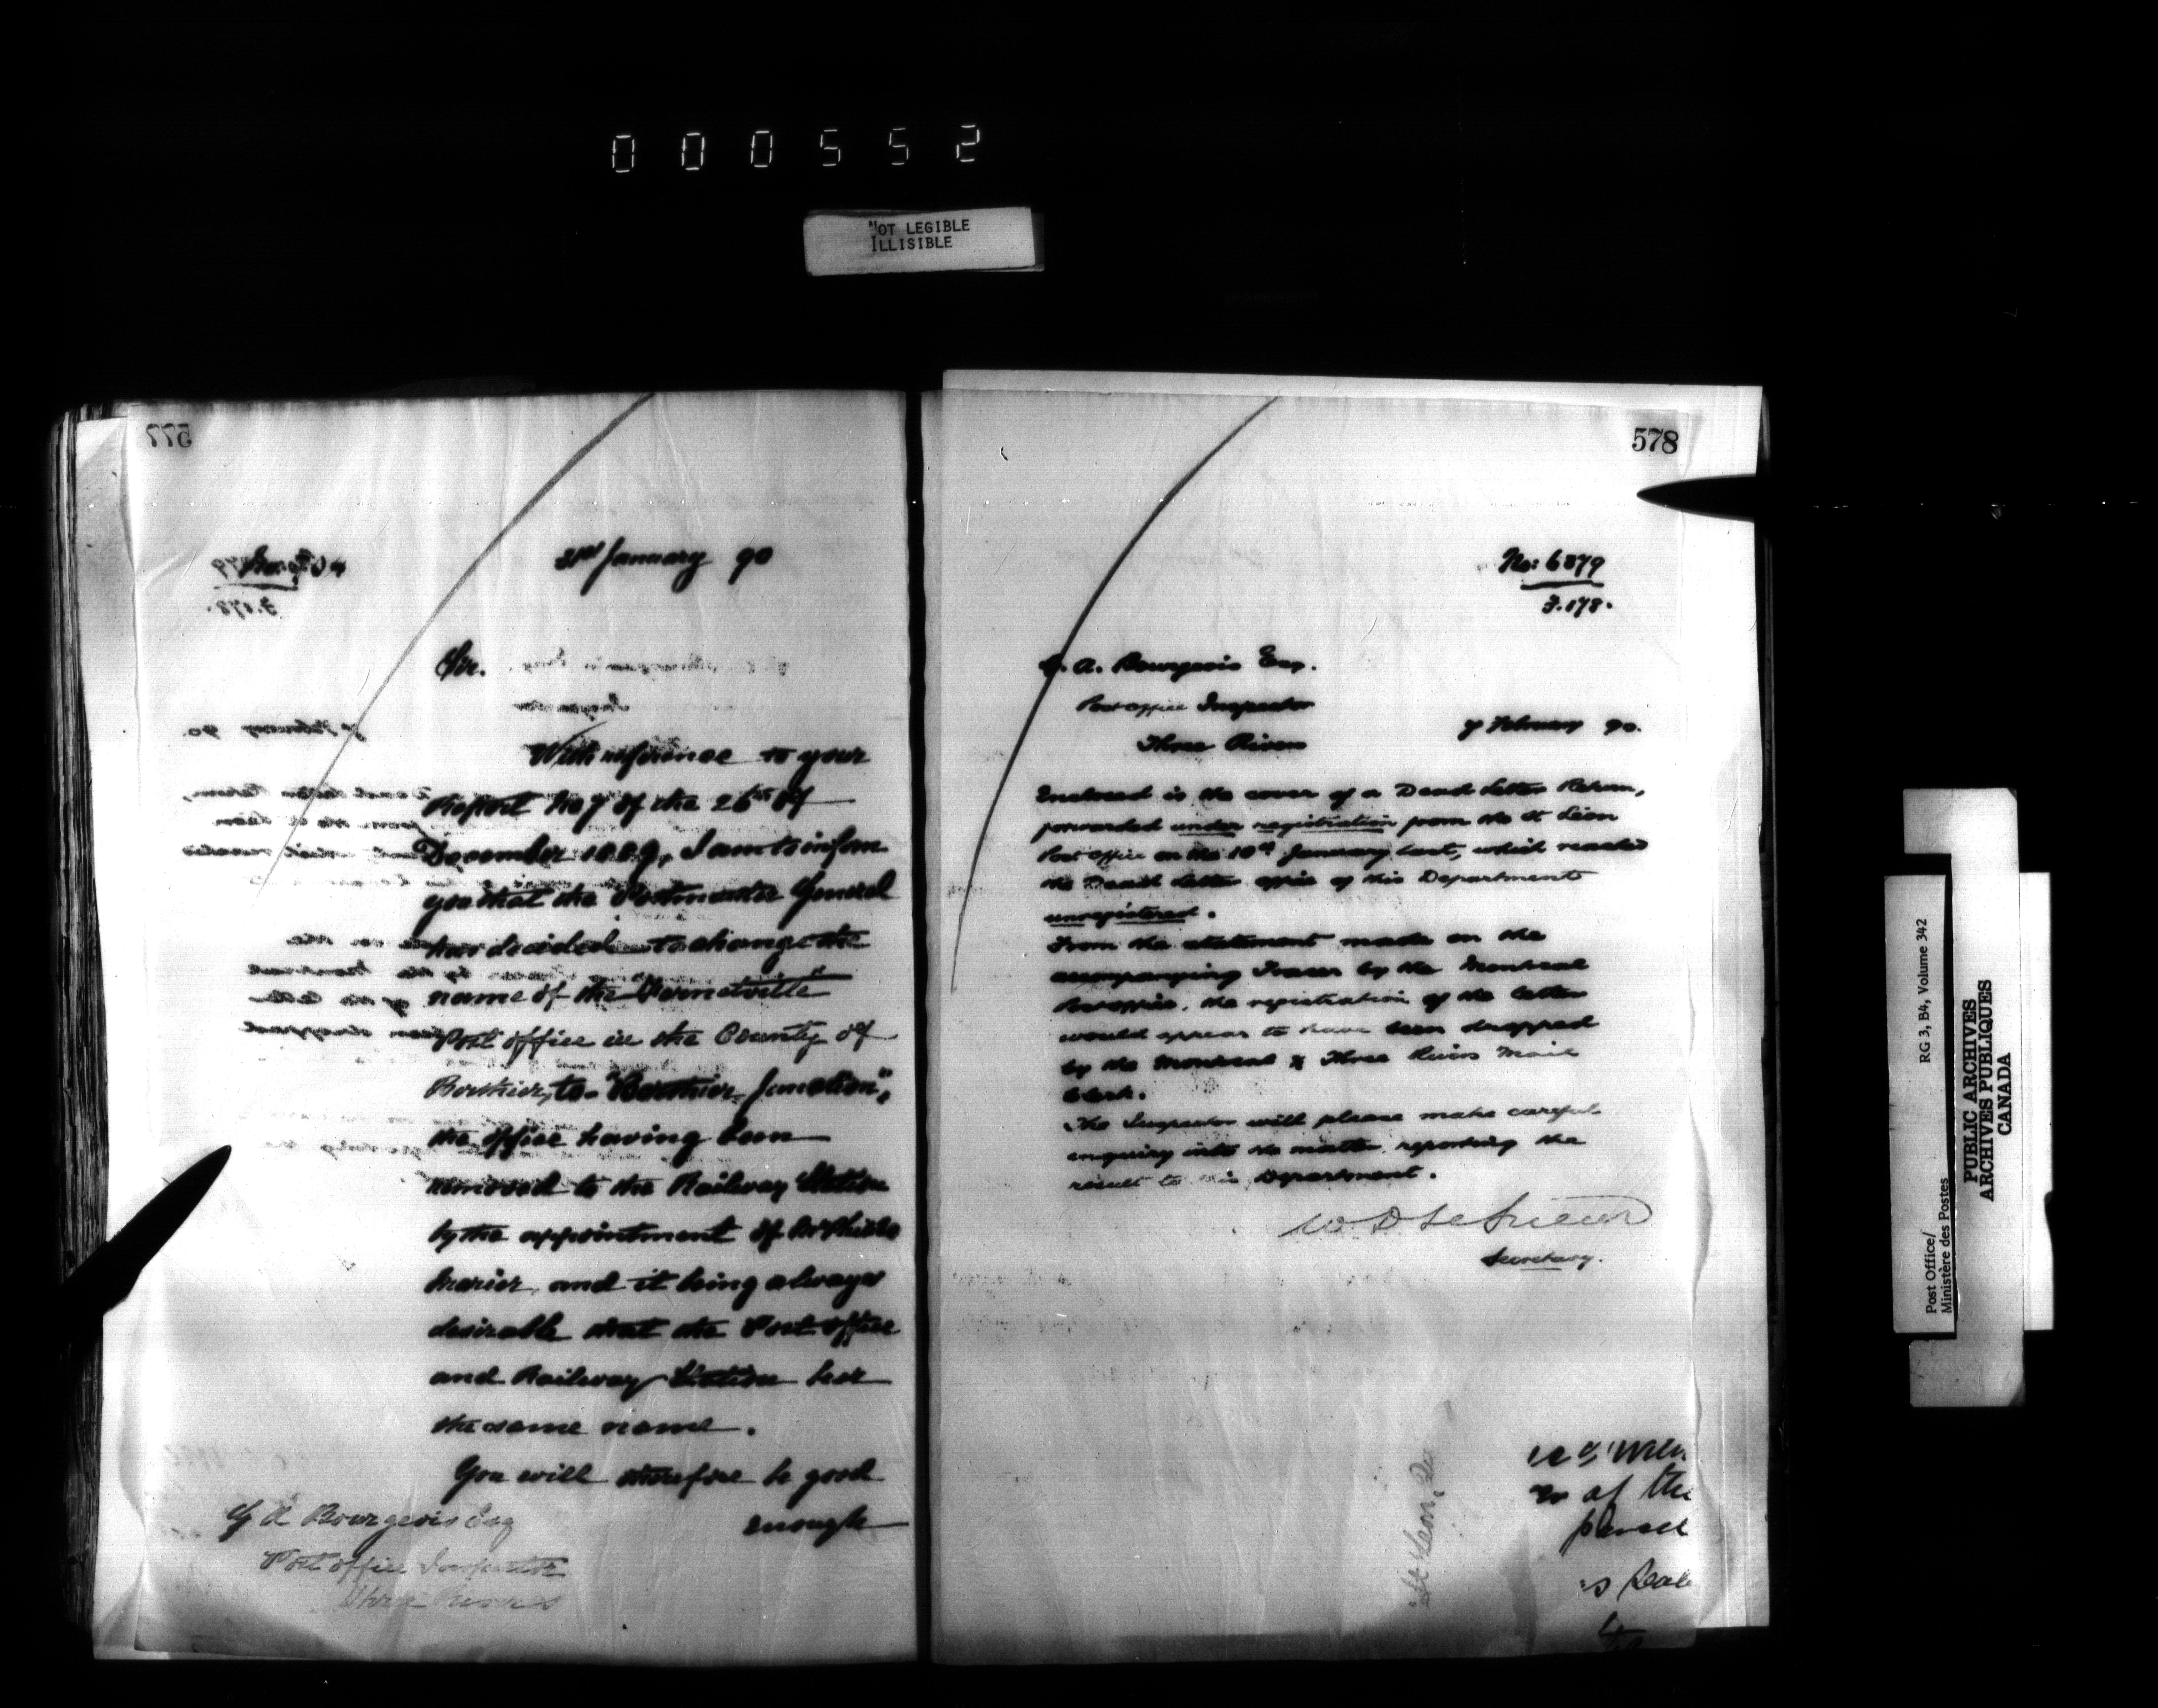 000552
NOT LEGIBLE
ILLISIBLE
577
31st January 90
Sir.
With reference to your
Report No 7 of the 26th of
December 1889, I am to inform
you that the Postmaster General
has decided to change the
name of the
Post office in the County of
Berthier, to "Berthier Junction",
the office having been
removed to the Railway Station
by the appointment of
and it being always
desirable that the Post office
and Railway Station bear
the same name.
You will therefore be good
enough
G A Bourgeois Esq
Post office Inspector
Three Rivers
578
No: 6379
F. 178.
G. A. Bourgeois Esq.
Post office Inspector
Three Rivers
7 February 90.
Enclosed is the cover of a Dead Letter Return,
forwarded under registration from the St Léon
Post office on the 10th January last, which reached
the Dead Letter office of this Department
unregistered.
From the statement made on the
accompanying Tracer by the Montreal
Post office, the registration of the letter
would appear to have been dropped
by the Montreal & Three Rivers Mail
Clerk.
The Inspector will please make careful
enquiry into the matter reporting the
result to this Department.
W. D LeSueur
Secretary.
St Leon, Q
at the
RG 3, B4, Volume 342
Post Office/
Ministère des Postes
PUBLIC ARCHIVES
ARCHIVES PUBLIQUES
CANADA